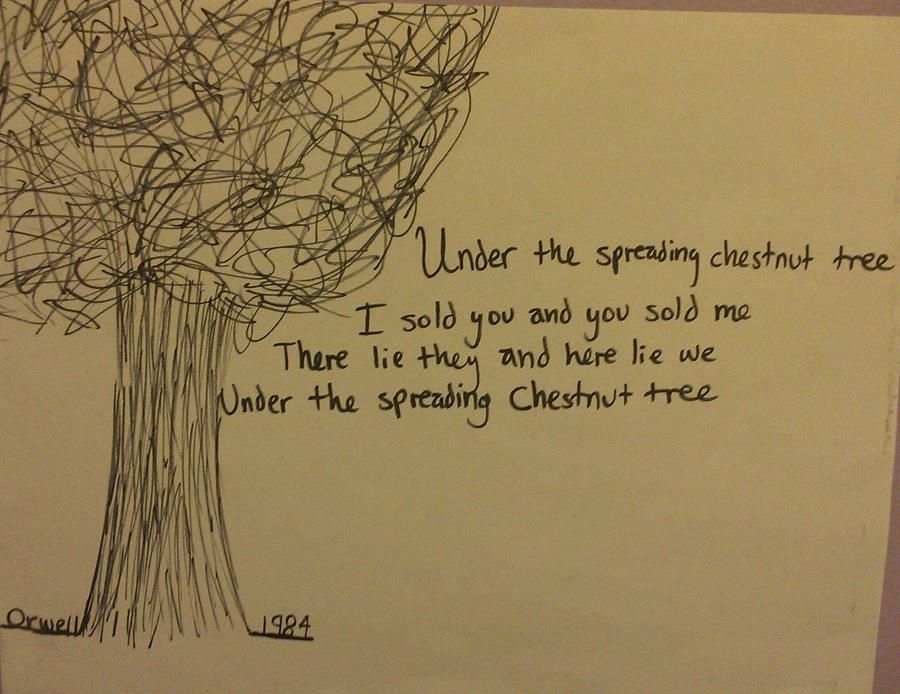 Under the spreading chestnut tree
I sold you and you sold me
There lie they and here lie we
Under the spreading Chestnut tree
Orwell 1984